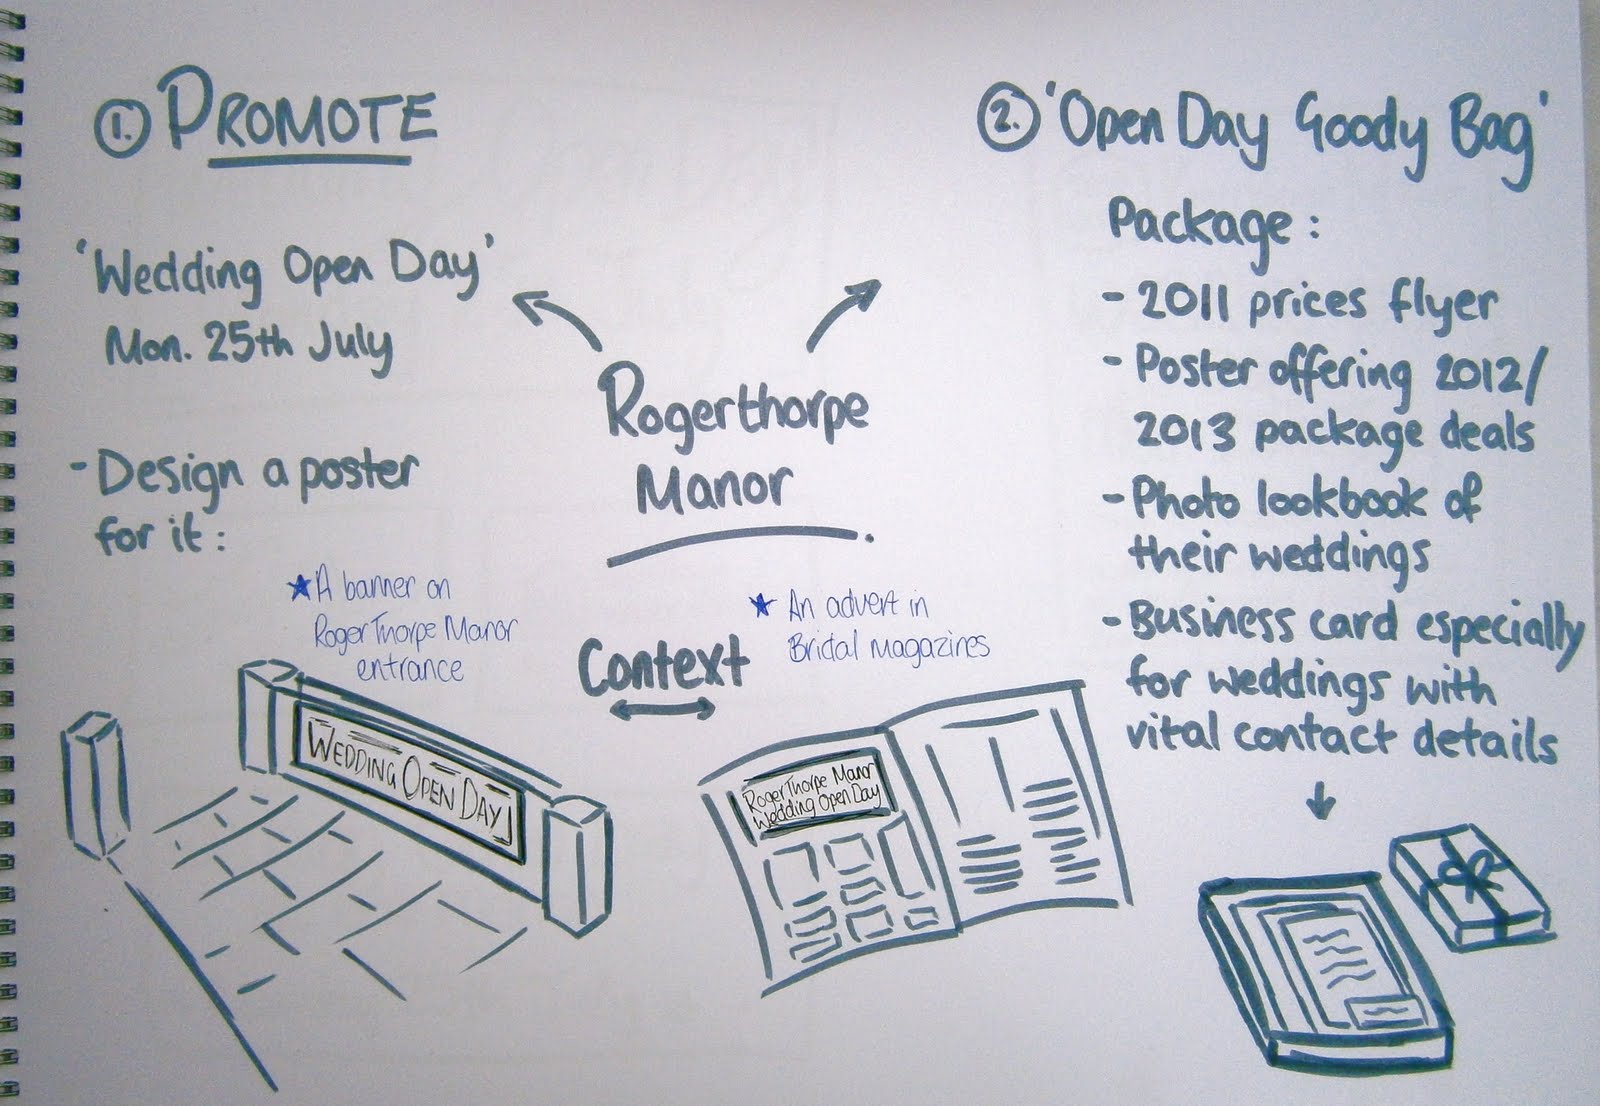 1. PROMOTE
'Wedding Open Day'
Mon. 25th July
- Design a poster
for it:
★ A banner on
RogerThorpe Manor
entrance
WEDDING OPEN DAY
Rogerthorpe
Manor
Context
★ An advert in
Bridal magazines
RogerThorpe Manor
Wedding Open Day
2. 'Open Day Goody Bag'
Package:
- 2011 prices flyer
- Poster offering 2012/
2013 package deals
- Photo lookbook of
their weddings
- Business card especially
for weddings with
vital contact details